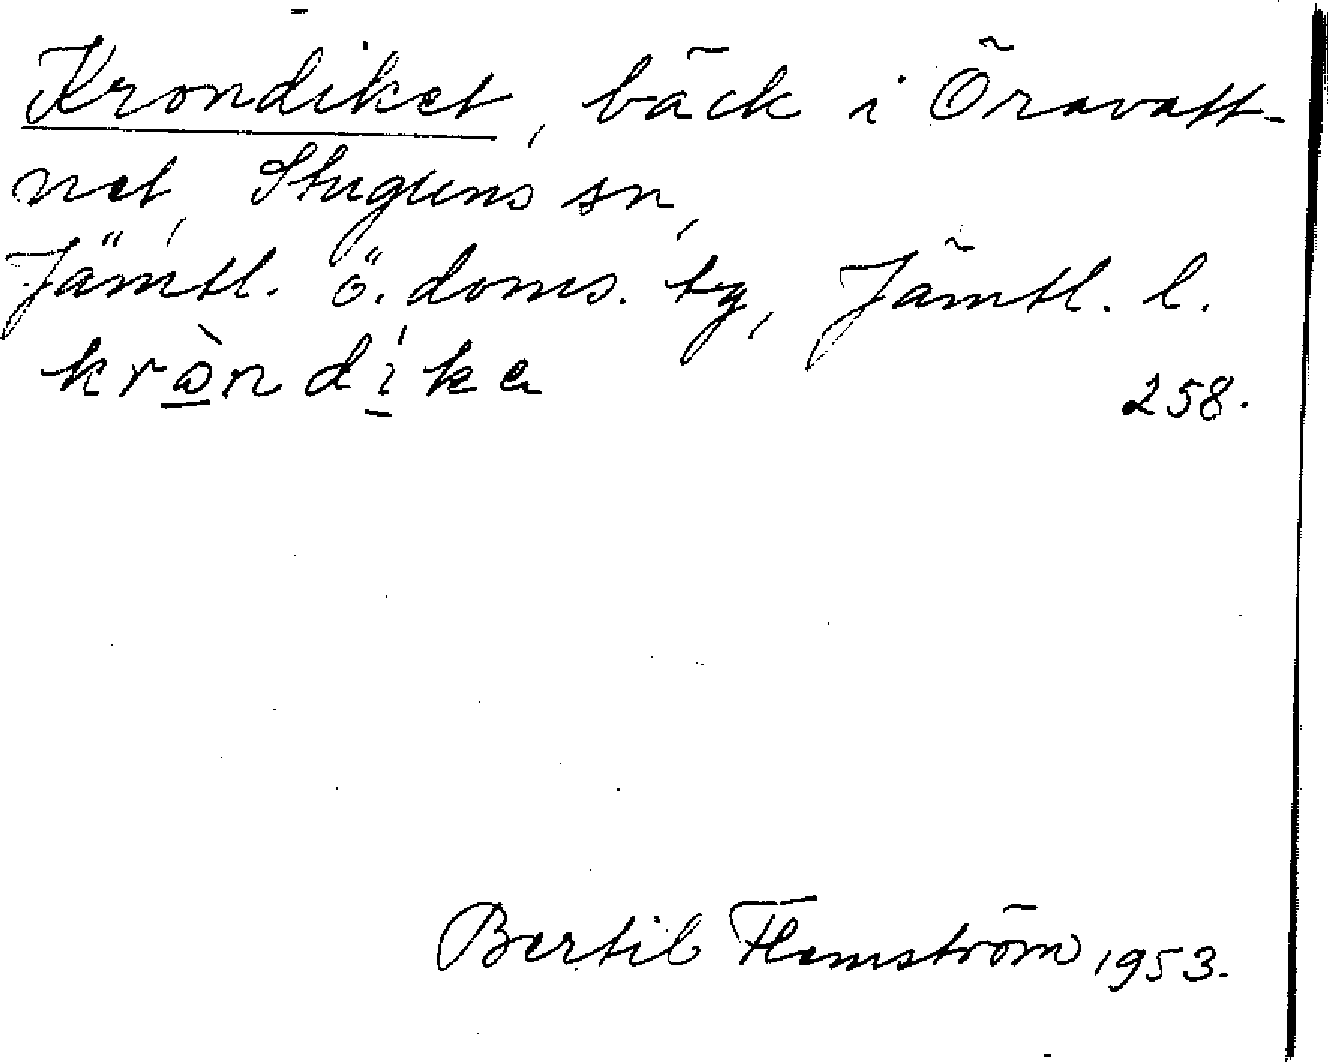 Krondiket, bäck i Öravatt-
net, Stuguns sn,
Jämtl. ö. doms. tg, Jämtl. l.
kròndíka
258.
Bertil Flemström 1953.